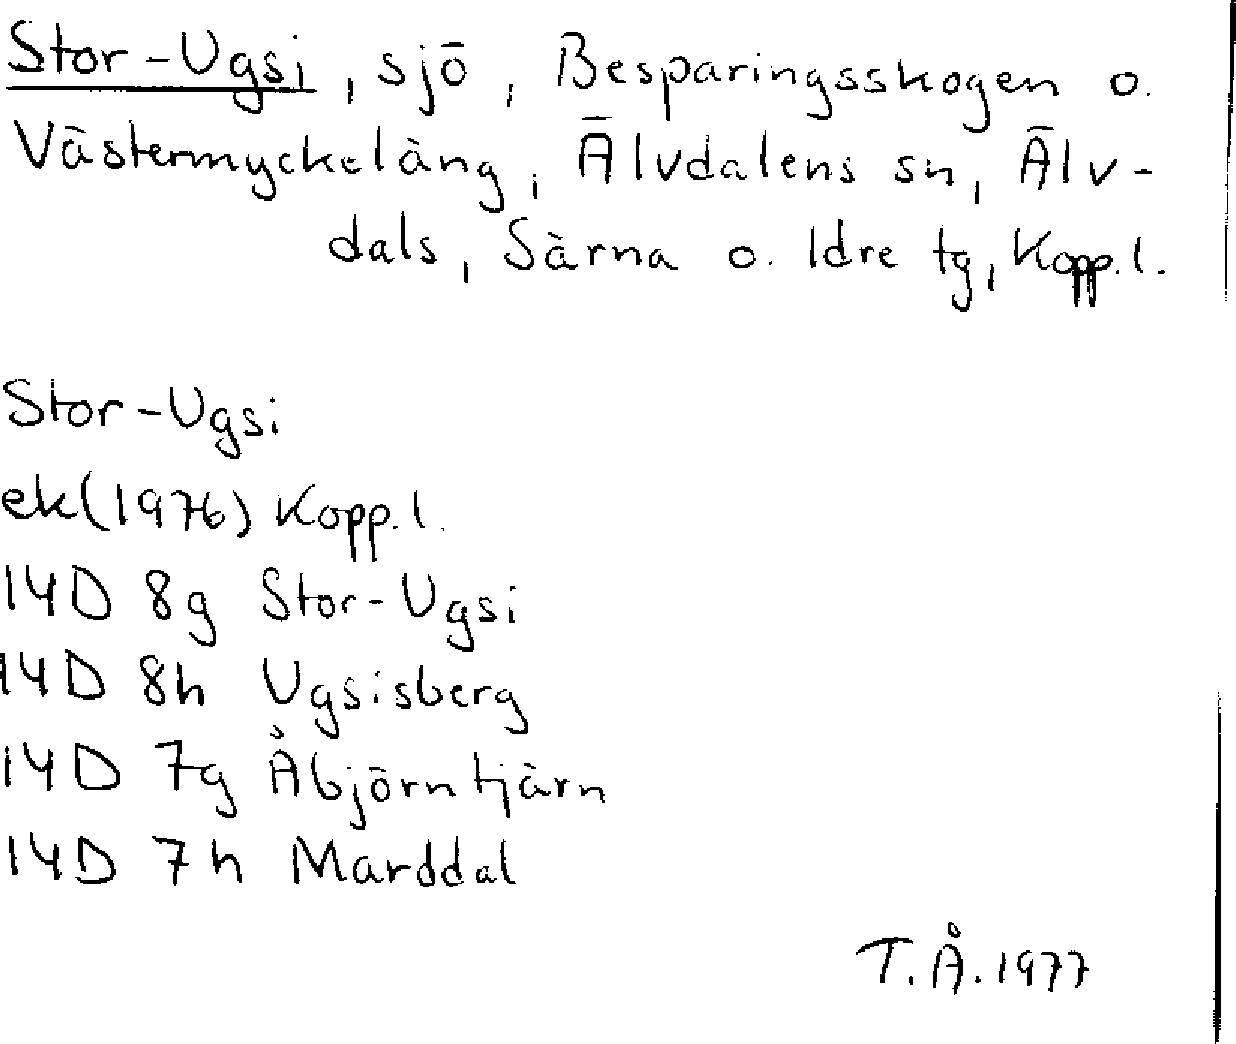 Stor-Ugsi, sjö, Besparingsskogen o.
Västermyckeläng, Älvdalens sn, Älv-
dals, Särna o. Idre tg, Kopp.l.
Stor-Ugsi
ek(1976) Kopp.l.
14D 8g Stor-Ugsi
14D 8h Ugsisberg
14D 7g Åbjörntjärn
14D 7h Marddal
T.Å.1977